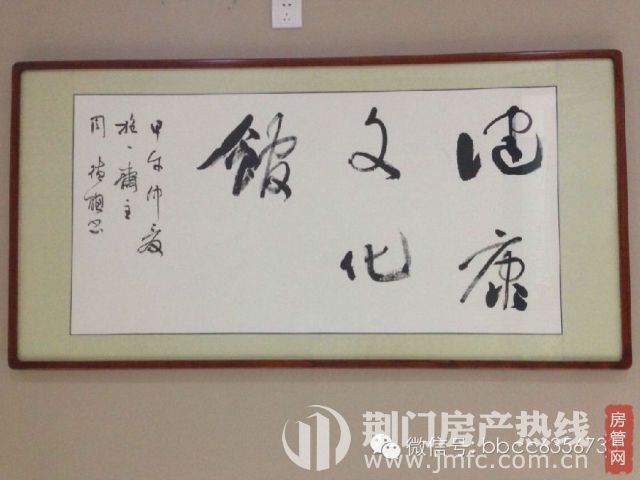 健康
文化
館
甲午仲夏
齋主
荆门房产热线
微信号: bbcc835673
www.jmfc.com.cn
房管网